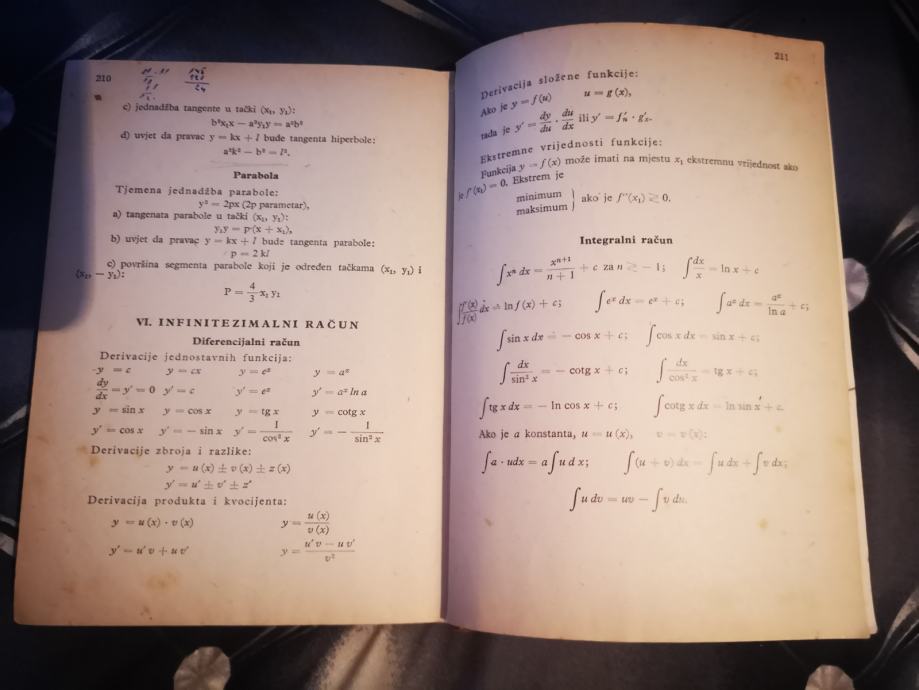 210
c) jednadžba tangente u tački (x₁, y₁):
b²x₁x — a²y₁y = a²b²
d) uvjet da pravac y = kx + l bude tangenta hiperbole:
a²k² — b² = l².
Parabola
Tjemena jednadžba parabole:
y² = 2px (2p parametar),
a) tangenata parabole u tački (x₁, y₁):
y₁y = p (x + x₁),
b) uvjet da pravac y = kx + l bude tangenta parabole:
p = 2 kl
c) površina segmenta parabole koji je određen tačkama (x₁, y₁) i
(x₁, — y₁):
P = 4/3 x₁ y₁
VI. INFINITEZIMALNI RAČUN
Diferencijalni račun
Derivacije jednostavnih funkcija:
y = c y = cx y = eˣ y = aˣ
dy/dx = y' = 0 y' = c y' = eˣ y' = aˣ ln a
y = sin x y = cos x y = tg x y = cotg x
y' = cos x y' = — sin x y' = 1/cos² x y' = — 1/sin² x
Derivacije zbroja i razlike:
y = u (x) ± v (x) ± z (x)
y' = u' ± v' ± z'
Derivacija produkta i kvocijenta:
y = u (x) · v (x) y = u (x)/v (x)
y' = u' v + u v' y = u' v — u v'/v²
211
Derivacija složene funkcije:
Ako je y = f (u) u = g (x),
tada je y' = dy/du · du/dx ili y' = f'ᵤ · g'ₓ.
Ekstremne vrijednosti funkcije:
Funkcija y = f (x) može imati na mjestu x₁ ekstremnu vrijednost ako
je f' (x₁) = 0. Ekstrem je
minimum
maksimum } ako je f'' (x₁) ≷ 0.
Integralni račun
∫ xⁿ dx = xⁿ⁺¹/n + 1 + c za n ≷ — 1; ∫ dx/x = ln x + c
∫ f'(x)/f(x) dx = ln f (x) + c; ∫ eˣ dx = eˣ + c; ∫ aˣ dx = aˣ/ln a + c;
∫ sin x dx = — cos x + c; ∫ cos x dx = sin x + c;
∫ dx/sin² x = — cotg x + c; ∫ dx/cos² x = tg x + c;
∫ tg x dx = — ln cos x + c; ∫ cotg x dx = ln sin x + c.
Ako je a konstanta, u = u (x), v = v (x):
∫ a · udx = a ∫ u d x; ∫ (u + v) dx = ∫ u dx + ∫ v dx;
∫ u dv = uv — ∫ v du.